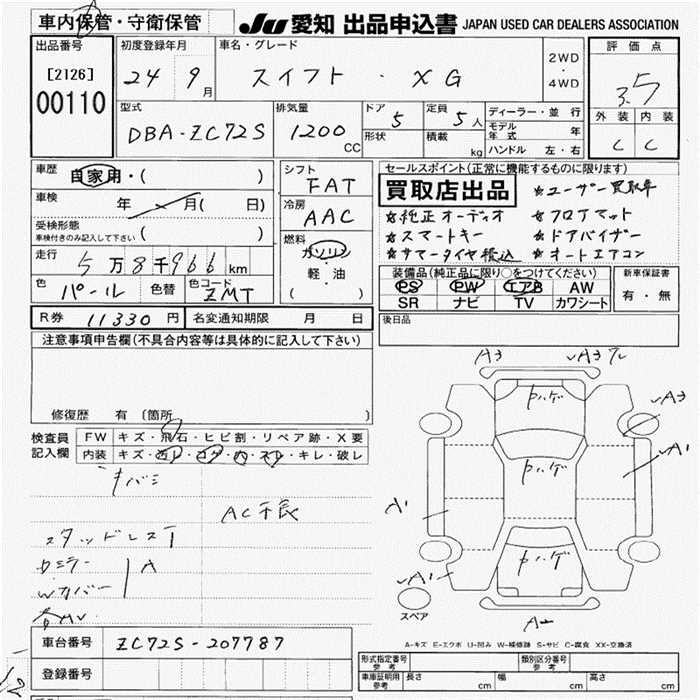 車内保管・守衛保管
JU 愛知 出品申込書 JAPAN USED CAR DEALERS ASSOCIATION
出品番号 初度登録年月 車名・グレード 2WD・4WD 評価点
[2126] 24 9月 スイフト・XG 3.5
00110 型式 排気量 ドア 5 定員 5人 ディーラー・並行 外装 内装
DBA-ZC72S 1200CC 形状 積載 kg モデル年式 年 C C
ハンドル 左・右
車歴 自家用・( ) シフト FAT セールスポイント(正常に機能するものに限ります)
買取店出品 ☆ユーザー買取車
車検 年 月( 日) 冷房 AAC ☆純正オーディオ ☆フロアマット
受検形態 車検付きのみ記入して下さい ( ) ☆スマートキー ☆ドアバイザー
走行 5万8千966km 燃料 ガソリン ☆サマータイヤ積込 ☆オートエアコン
軽・油 ( ) 装備品(純正品に限り○をつけてください) 新車保証書
色 パール 色替 色コード ZMT PS PW エアB AW 有・無
SR ナビ TV カワシート
R券 11330円 名変通知期限 月 日 後日品
注意事項申告欄(不具合内容等は具体的に記入して下さい)
A3 A3
カハゲ
A3
修復歴 有〔箇所 〕
検査員記入欄 FW キズ・飛石・ヒビ割・リペア跡・X要
内装 キズ・コゲ・穴・スレ・キレ・破レ
A1
カハゲ
AC不良
A1
スタッドレス
カハゲ
Wカバー A
A1
スペア
A2
A-キズ E-エクボ U-凹み W-補修跡 S-サビ C-腐食 XX-交換済
車台番号 ZC72S-207787
登録番号
形式指定番号 参考 類別区分番号 参考
車庫証明用 参考 長さ cm 幅 cm 高さ cm